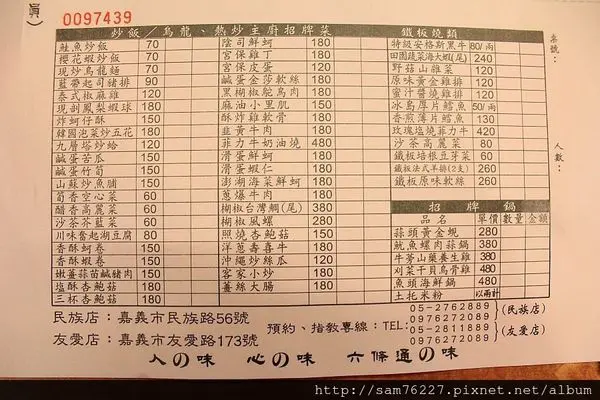 0097439
炒飯/烏龍、熱炒主廚招牌菜
鐵板燒類
桌號：
人數：
鮭魚炒飯 70 陰司鮮蚵 180 特級安格斯黑牛 80/兩
櫻花蝦炒飯 70 宮保雞丁 180 田園蔬菜海大蝦(尾) 240
現炒烏龍麵 70 宮保皮蛋 120 野菇山雞菜 120
藍帶起司豬排 90 鹹蛋金莎軟絲 180 原味黃金雞排 120
泰式椒麻雞 120 黑椒鴕鳥肉 180 蜜汁醬燒雞排 120
現剖鳳梨蝦球 180 麻油小里肌 150 冰島厚片鱈魚 50/兩
炸蚵仔酥 150 酥炸雞軟骨 180 香煎薄片鱈魚 130
韓國泡菜炒五花 180 韭黃牛肉 180 玫瑰塩燒菲力牛 420
九層塔炒蛤 120 菲力牛奶油燒 480 沙茶高麗菜 80
鹹蛋苦瓜 150 滑蛋鮮蚵 180 鐵板培根豆芽菜 60
鹹蛋竹筍 150 滑蛋蝦仁 180 鐵板法式羊排(2支) 260
山蘇炒魚脯 150 澎湖海菜鮮蚵 180 鐵板原味軟絲 260
筍香空心菜 60 蔥爆牛肉 180
醋香高麗菜 60 椒椒台灣鯛(尾) 380 招牌鍋
沙茶芥藍菜 60 椒椒風螺 280 品名 單價 數量 金額
川味奮起湖豆腐 80 照燒杏鮑菇 150 蒜頭黃金蜆 280
香酥蚵卷 150 洋蔥壽喜牛 180 魷魚螺肉蒜鍋 380
香酥蝦卷 150 沖繩炒絲瓜 120 牛蒡山藥養生雞 380
嫩薑蒜苗鹹豬肉 150 客家小炒 180 刈菜干貝烏骨雞 480
塩酥杏鮑菇 180 薑絲大腸 180 魚頭海鮮鍋 480
三杯杏鮑菇 180 土托米粉 以兩計
民族店：嘉義市民族路56號
友愛店：嘉義市友愛路173號
預約、指教專線：TEL:
05-2762889
0976272089
(民族店)
05-2811889
0976272089
(友愛店)
人の味 心の味 六條通の味
http://sam76227.pixnet.net/album